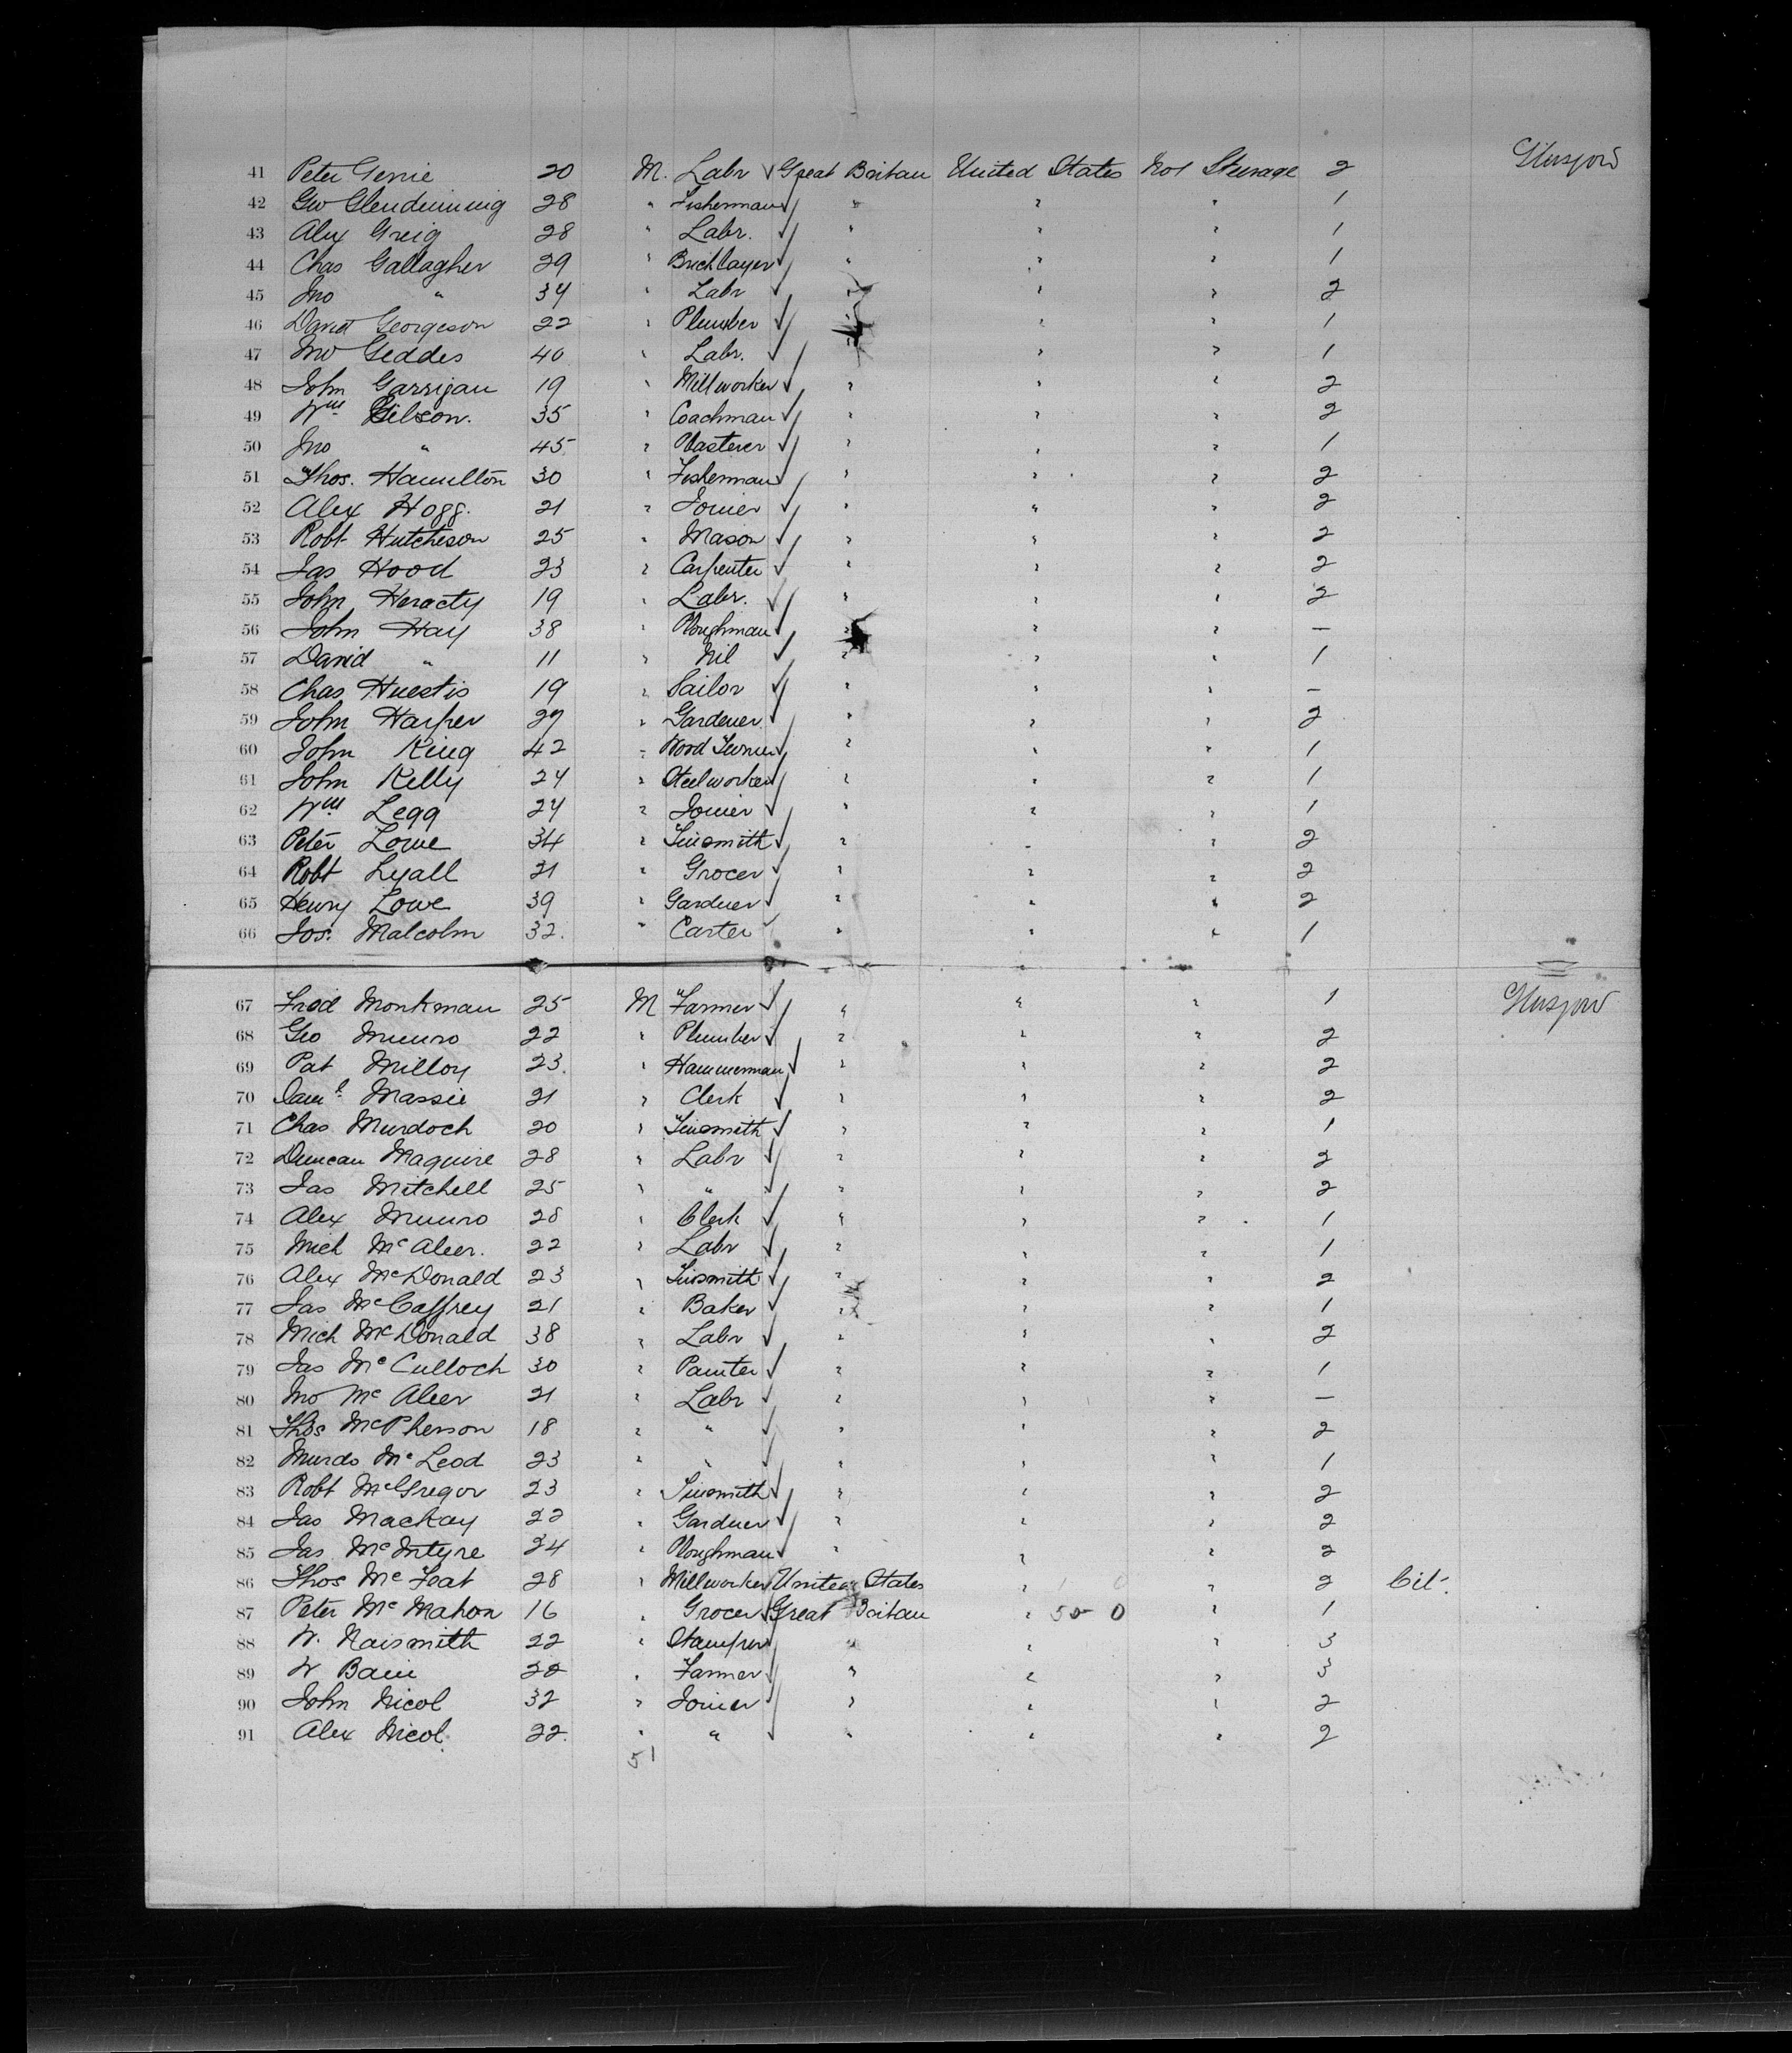 41 Peter Gerrie 20 M. Labr Great Britain United States No1 Steerage 2 Glasgow
42 Geo Glendinning 28 " Fisherman " " " 1
43 Alex Greig 28 " Labr. " " " 1
44 Chas Gallagher 29 " Bricklayer " " " 1
45 Jno " 34 " Labr " " " 2
46 David Georgeson 22 " Plumber " " " 1
47 Jno Geddes 40 " Labr. " " 1
48 John Garrigan 19 " Millworker " " " 2
49 Wm Gibson. 35 " Coachman " " " 2
50 Jno " 45 " Plasterer " " " 1
51 Thos. Hamilton 30 " Fisherman " " " 2
52 Alex Hogg. 21 " Joiner " " " 2
53 Robt Hutcheson 25 " Mason " " " 2
54 Jas Hood 23 " Carpenter " " " 2
55 John Heracty 19 " Labr. " " " 2
56 John Hay 38 " Ploughman " " " —
57 David " 11 " Nil " " " 1
58 Chas Huestis 19 " Sailor " " " —
59 John Harper 27 " Gardener " " " 2
60 John King 42 " Wood Turner " " " 1
61 John Kelly 24 " Steelworker " " " 1
62 Wm Legg 24 " Joiner " " " 1
63 Peter Lowe 34 " Tinsmith " " " 2
64 Robt Lyall 21 " Grocer " " " 2
65 Henry Lowe 39 " Garduer " " " 2
66 Jos. Malcolm 32. " Carter " " " 1
67 Fred Monkman 25 M Farmer " " " 1 Glasgow
68 Geo Munro 22 " Plumber " " " 2
69 Pat Milloy 23. " Hammerman " " " 2
70 Saml. Massie 21 " Clerk " " " 2
71 Chas Murdoch 20 " Tinsmith " " " 1
72 Duncan Maguire 28 " Labr " " " 2
73 Jas Mitchell 25 " " " " " 2
74 Alex Munro 28 " Clerk " " " 1
75 Mich McAleer. 22 " Labr " " " 1
76 Alex McDonald 23 " Tinsmith " " " 2
77 Jas McCaffrey 21 " Baker " " " 1
78 Mich McDonald 38 " Labr " " " 2
79 Jas McCulloch 30 " Painter " " " 1
80 Jno McAleer 21 " Labr " " " —
81 Thos McPherson 18 " " " " " 2
82 Murdo McLeod 23 " " " " " 1
83 Robt McGregor 23 " Tinsmith " " " 2
84 Jas Mackay 22 " Garduer " " " 2
85 Jas McIntyre 24 " Ploughman " " " 2
86 Thos McFeat 28 " Millworker United States " " 2 Cit.
87 Peter McMahon 16 " Grocer Great Britain " 50 0 " 1
88 W. Naismith 22 " Stamper " " " 3
89 W Bain 22 " Farmer " " " 3
90 John Nicol 32 " Joiner " " " 2
91 Alex Nicol. 22. " " " " " 2
51